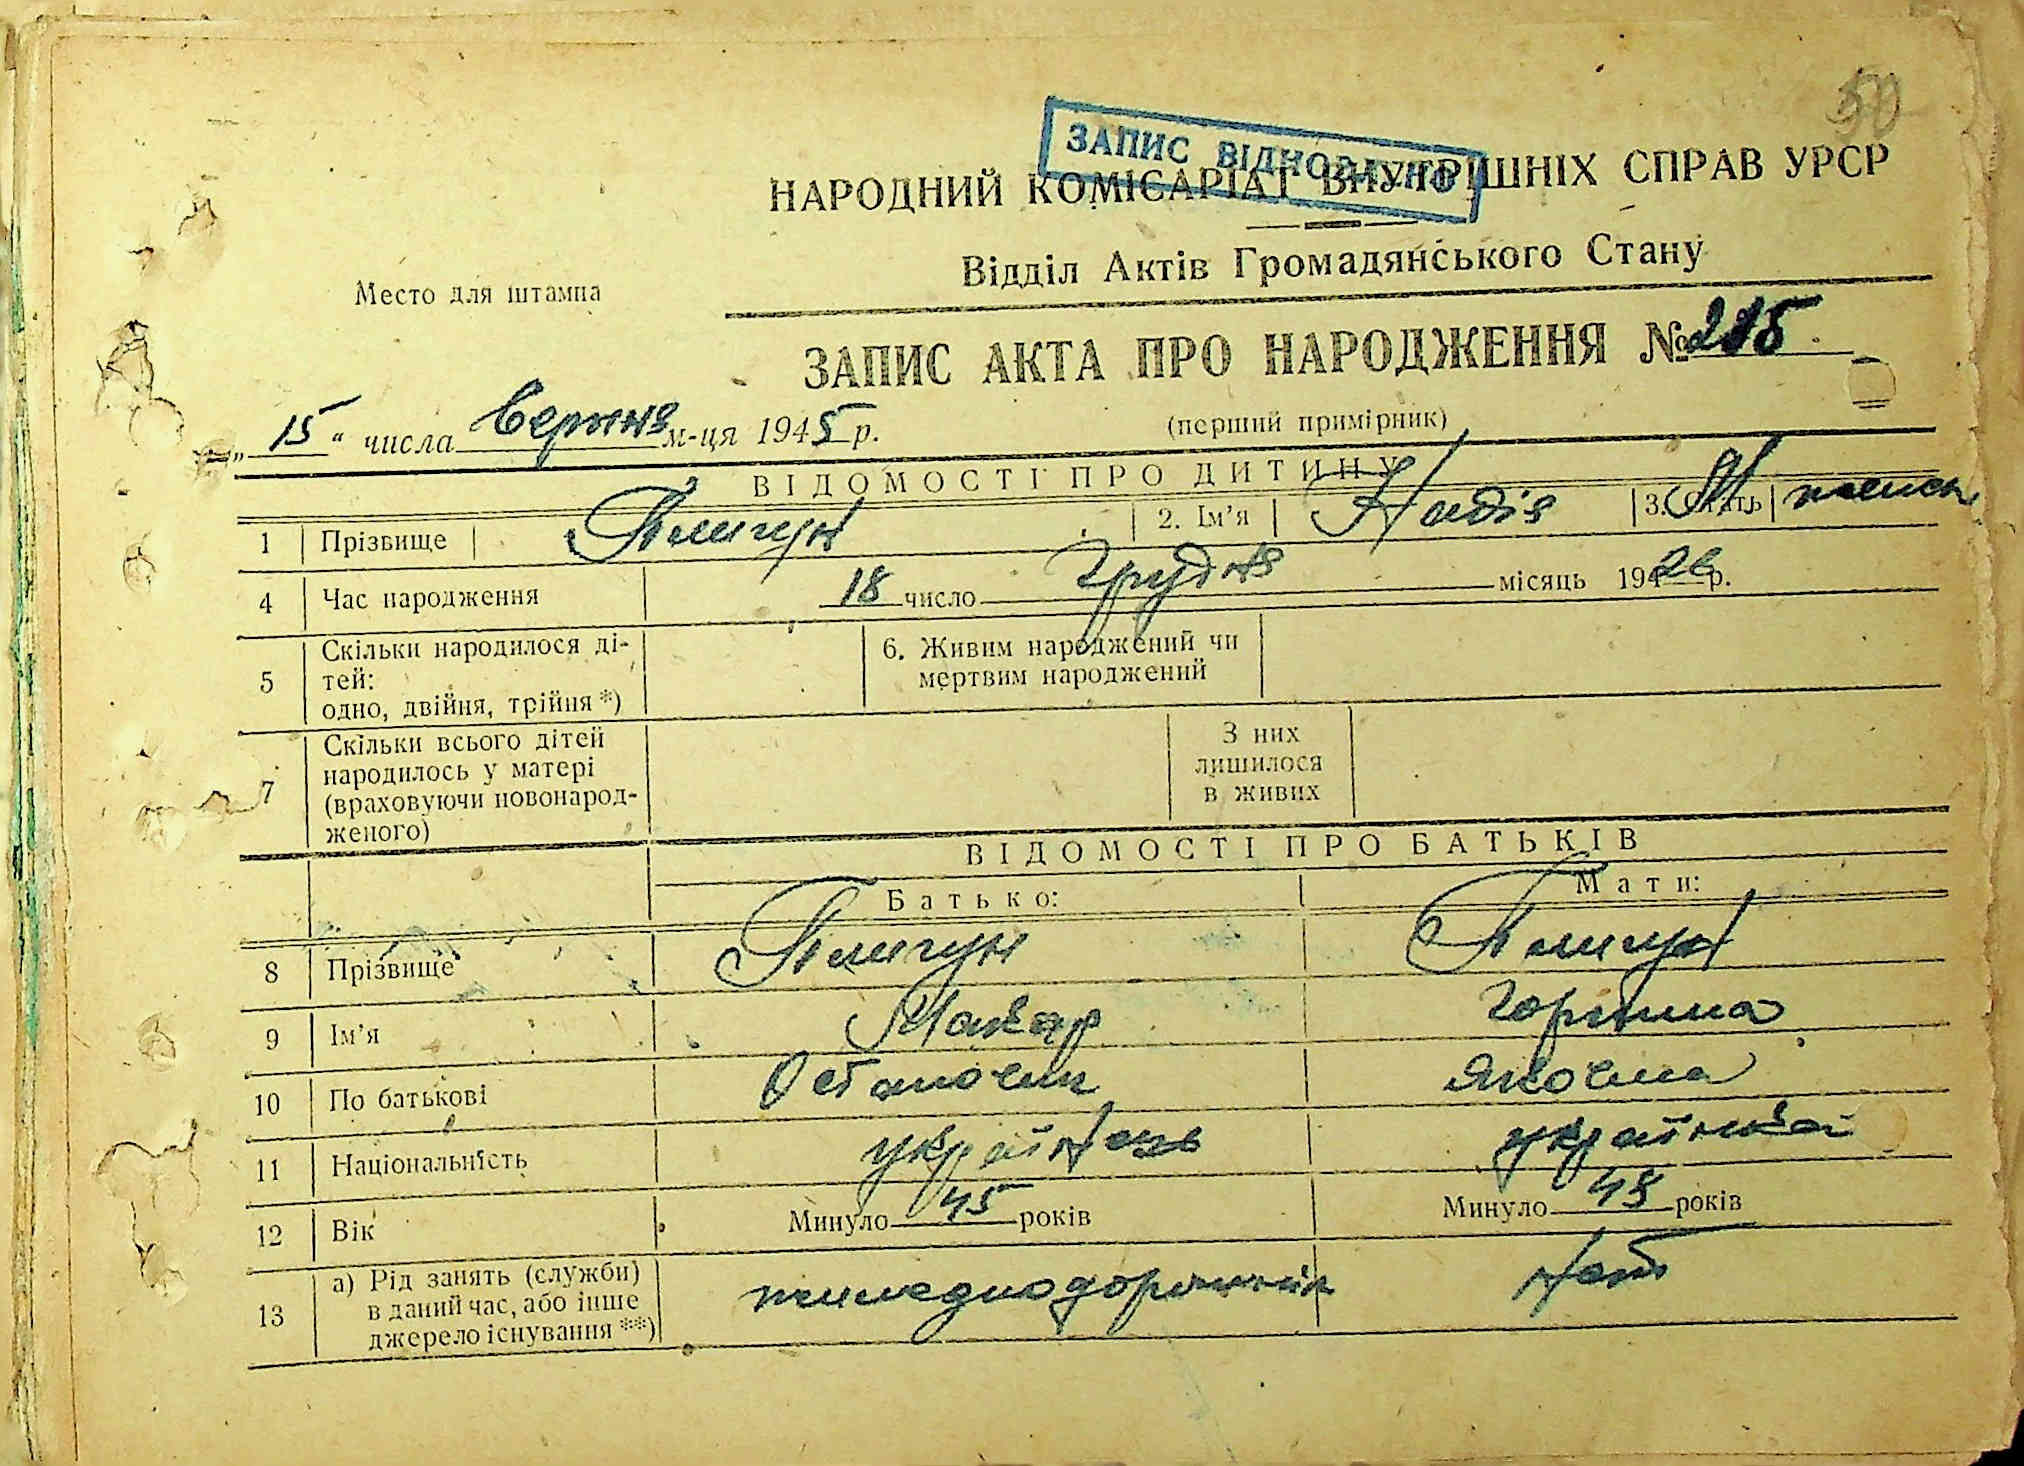 50
ЗАПИС ВІДНОВЛЕНО
НАРОДНИЙ КОМІСАРІАТ ВНУТРІШНІХ СПРАВ УРСР
Відділ Актів Громадянського Стану
Место для штампа
ЗАПИС АКТА ПРО НАРОДЖЕННЯ №215
„15“ числа Серпня м-ця 1945 р. (перший примірник)
ВІДОМОСТІ ПРО ДИТИНУ
1 Прізвище Плигун 2. Ім’я Надія 3. Стать
4 Час народження 18 число Грудня місяць 1926 р.
5 Скільки народилося ді-
тей:
одно, двійня, трійня *)
6. Живим народжений чи
мертвим народжений
7 Скільки всього дітей
народилось у матері
(враховуючи новонарод-
женого)
З них
лишилося
в живих
ВІДОМОСТІ ПРО БАТЬКІВ
Батько: Мати:
8 Прізвище Плигун Плигун
9 Ім’я Макар Горпина
10 По батькові Остапович Яковна
11 Національність українець українка
12 Вік Минуло 45 років Минуло 43 років
13 а) Рід занять (служби)
в даний час, або інше
джерело існування **)